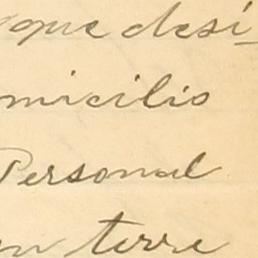 que desi-
micilio
Personal
en terre